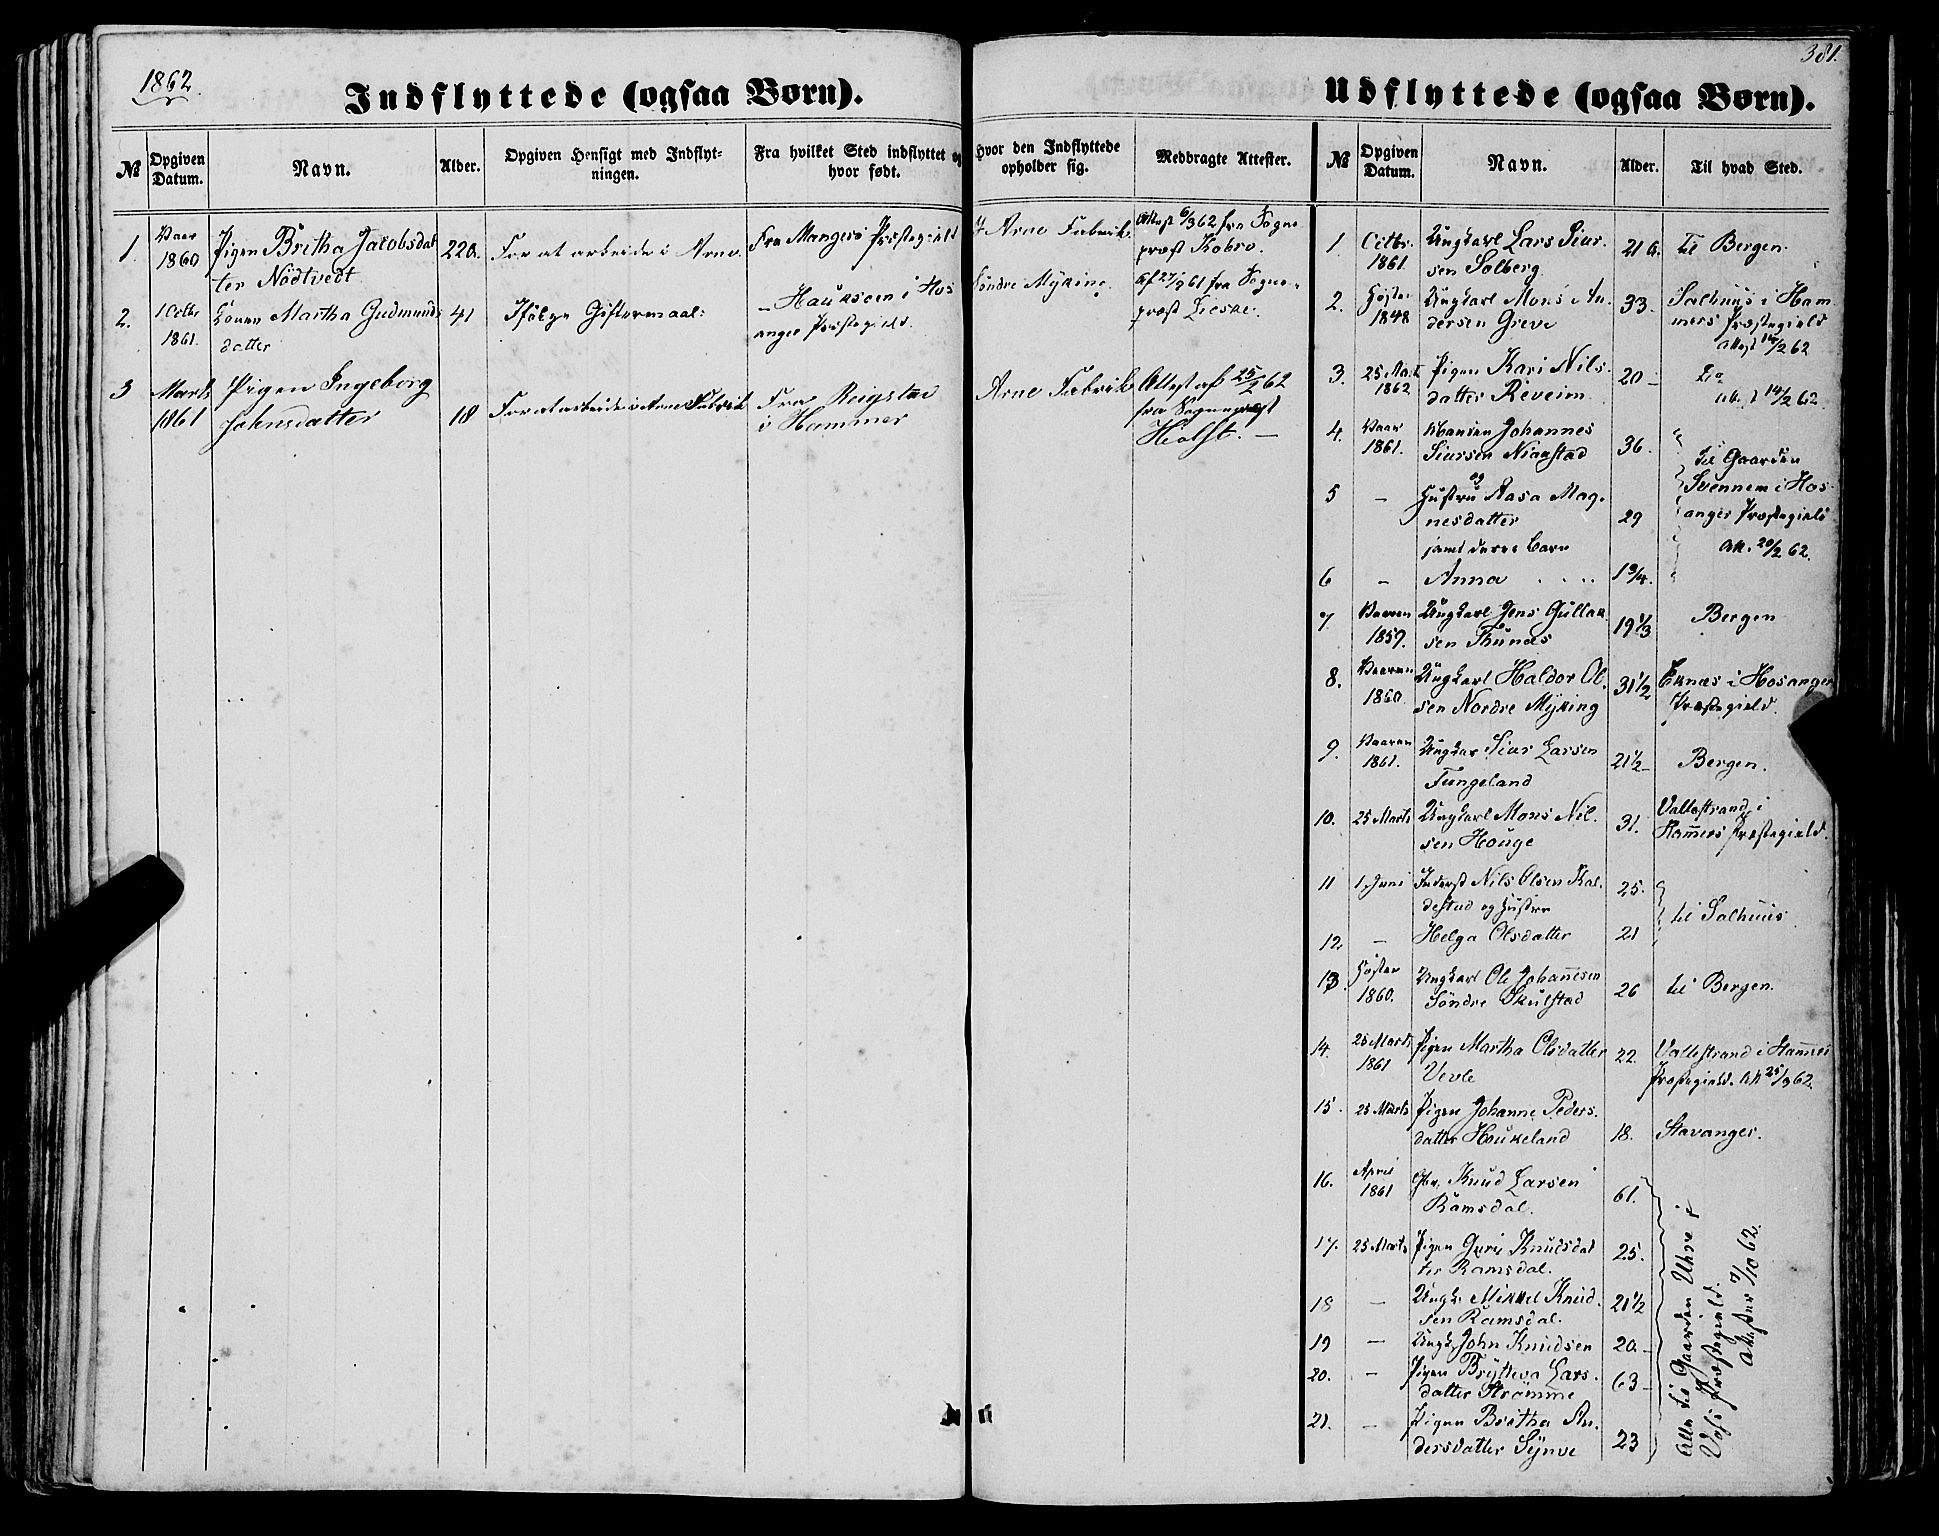 1862.
Indflyttede (ogsaa Børn).
№
Opgiven Datum.
Navn.
Alder.
Opgiven Hensigt med Indflyt-
ningen.
Fra hvilket Sted indflyttet og
hvor født.
Hvor den Indflyttede
opholder sig.
Medbragte Attester.
1.
Vaar
1860
Pigen Britha Jacobsdat
ter Nödtvedt
22 a.
For at arbeide i Arne
Fra Mangers Præstegield
Arne Fabrik
Attest 6/3 62 fra Sogne
præst Kobro.
2.
1 Octbr
1861.
Konen Martha Gudmunds
datter
41
Ifölge Giftermaal:
– Hauksem i Hos
anger Præstegield.
Söndre Myking
af 27/9 61 fra Sogne-
præst
3
Marts
1861
Pigen Ingeborg
Johnsdatter
18
For at arbeide i Arne Fabrik
Fra Reigstad
i Hammer
Arne Fabrik
Attest af 25/2 62
fra Sognepræst
Holst. –
381.
Udflyttede (ogsaa Børn).
№
Opgiven Datum.
Navn.
Alder.
Til hvad Sted.
1.
Octbr.
1861.
Ungkarl Lars Siur
sen Solberg
21 a.
til Bergen
2.
Høsten
1848
Ungkarl Mons An
dersen Greve
33.
Salhuus i Ham
mers Præstegield
Attest 14/2 62
3.
25 Mart
1862
Pigen Kari Nils
datter Reveim
20 –
Do
14/2 62
4.
Vaar
1861.
Manden Johannes
Siursen
36.
til Gaarden
Svennem i Hos
anger Præstegield
Att. 20/2 62.
og
5
–
Hustru Aasa Mag
nesdatter
29
samt deres Barn
6
–
Anna . . . .
1 3/4.
7
Vaaren
1859.
Ungkarl Jens Gullak
sen Thunæs
19 1/3
Bergen
8.
Vaaren
1860.
Ungkarl Haldor Ol
sen Nordre Myking
31 1/2
Eknæs i Hosanger
Præstegield.
9.
Vaaren
1861.
Ungkar Siur Larsen
Tungeland
21 1/2 –
Bergen.
10.
25 Marts
Ungkarl Mons Nil
sen Houge
31.
Vallestrand i
Hamers Præstegield.
11
1. Juni
Inderst Nils Olsen Kal
destad og Hustru
25.
til Salhuus
12
–
Helga Olsdatter
21
13.
Høsten
1860.
Ungkarl Ole Johannesen
Söndre Skulstad
26
til Bergen.
14.
25 Marts
1861
Pigen Martha Olsdatter
Vevle
22.
Vallestrand i Hamers
Præstegield. Att 25/3 62.
15.
25 Marts
Pigen Johanne Peders
datter Houkeland
18.
Stavanger.
16.
April
1861
Knud Larsen
Ramsdal.
61.
17.
25 Marts
Pigen Guri Knudsdat
ter Ramsdal.
25.
18
–
Ungk. Mikkel Knud
sen Ramsdal.
21 1/2
19
–
Ungk. John Knudsen
20. –
20.
–
Pigen Bryteva Lars
datter Strömme
63 –
21.
–
Pigen Britha An
dersdatter Synve
23
Alle til Gaarden Uhre i
Voss Præstegield.
Attester 7/10 62.